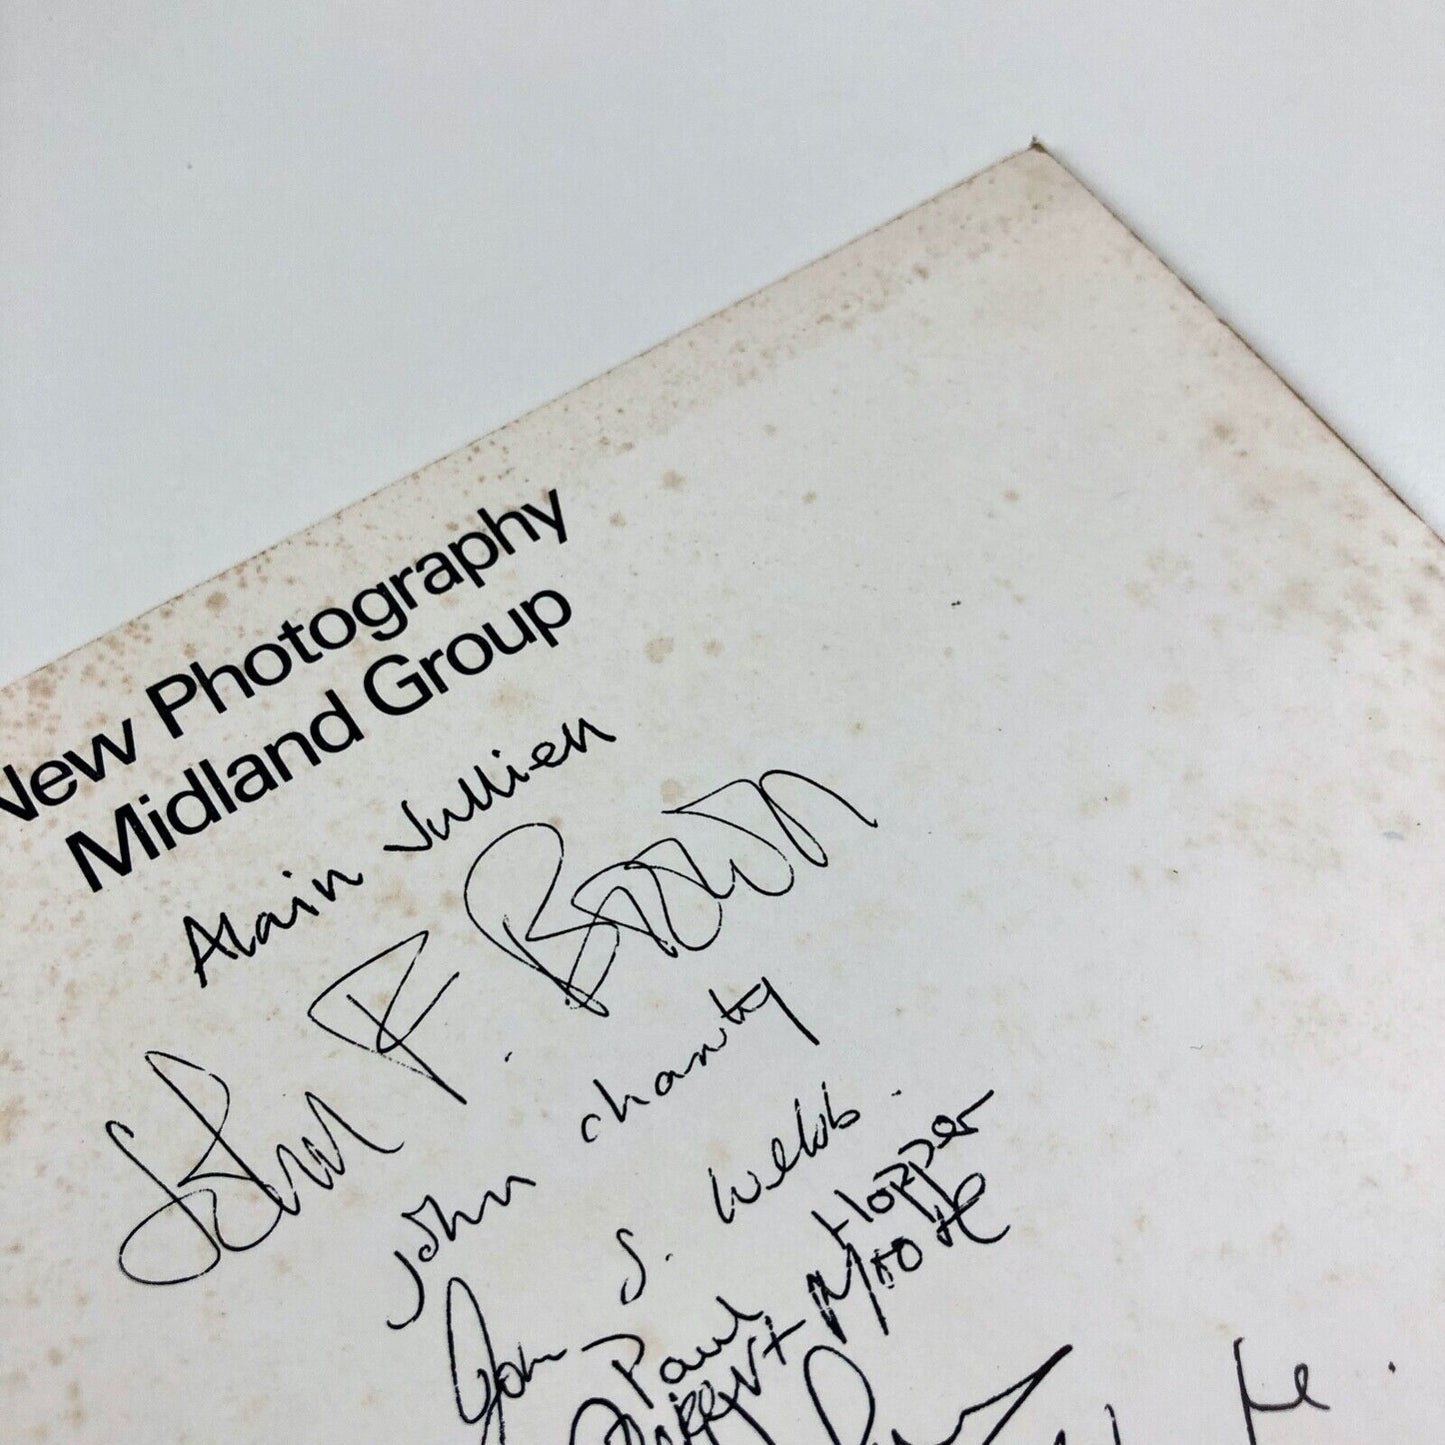 New Photography
Midland Group
Alain Jullien
John F. Brown
John Charity
Jon S. Webb.
Paul Hopper